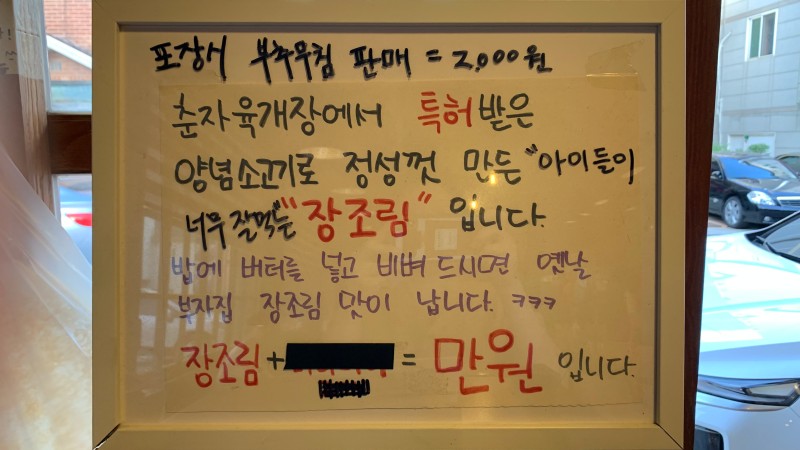 포장시 부추무침 판매 = 2,000원
춘자육개장에서 특허받은
양념소고기로 정성껏 만든 "아이들이
너무 잘먹는" "장조림" 입니다.
밥에 버터를 넣고 비벼 드시면 옛날
부자집 장조림 맛이 납니다. ㅋㅋㅋ
장조림+ = 만원 입니다.